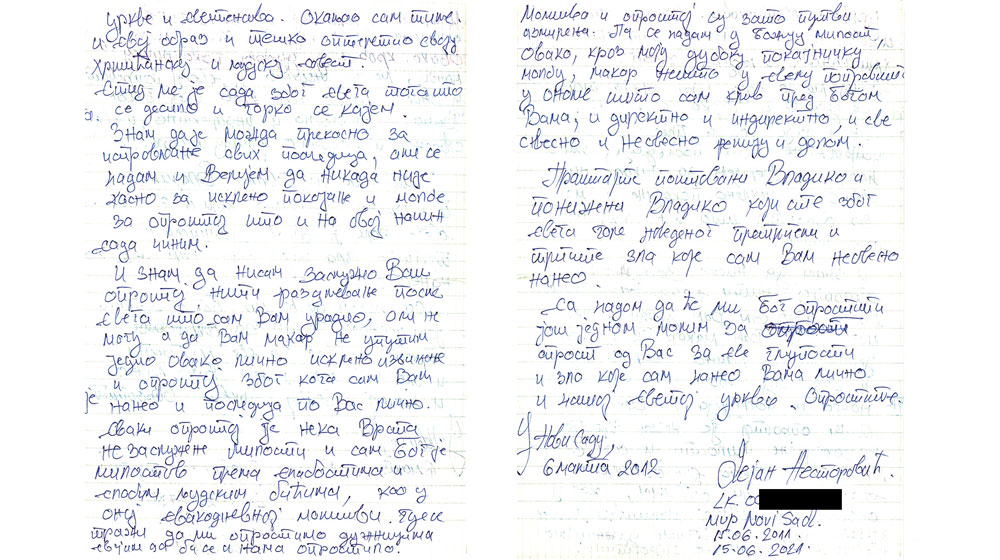 цркве и свештенство. Окаљао сам тиме
и свој образ и тешко оптеретио своју
хришћанску и људску савест.
Стид ме је сада због свега тога што
се десило и горко се кајем.
Знам да је можда прекасно за
исправљање свих последица, али се
надам и Верујем да никада није
касно за искрено покајање и молбе
за опроштај што и на овој начин
сада чиним.
И знам да нисам заслужио Ваш
опроштај нити разумевање после
свега што сам Вам урадио, али не
могу а да Вам макар не упутим
једно овако лично искрено извињење
и опроштај због кога сам Вам
је нанео и последица по Вас лично.
Сваки опроштај је нека Врста
незаслужене милости и сам Бог је
милостив према слабостима и
слабим људским бићима, као у
оној свакодневној молитви где се
тражи да ми опростимо дужницима
својим да би се и нама опростило.
Молитва и опроштај су зато путеви
измирења. Па се надам у Божију милост,
овако, кроз моју дубоку покајничку
молбу, макар нешто у свему поправити
у ономе што сам крив пред Богом
Вама, и директно и индиректно, и све
свесно и несвесно речију и делом.
Праштајте поштовани Владико и
понижени Владико који сте због
свега горе наведеног претрпели и
трпите зла које сам Вам несвесно
нанео.
Са надом да ће ми Бог опростити
још једном молим за
опрост од Вас за све глупости
и зло које сам нанео Вама лично
и нашој светој цркви. Опростите.
У Нови Саду,
6 марта 2012
Дејан Несторовић.
LK. 00
МУР Novi Sad.
15.06.2011.
15.06.2021.